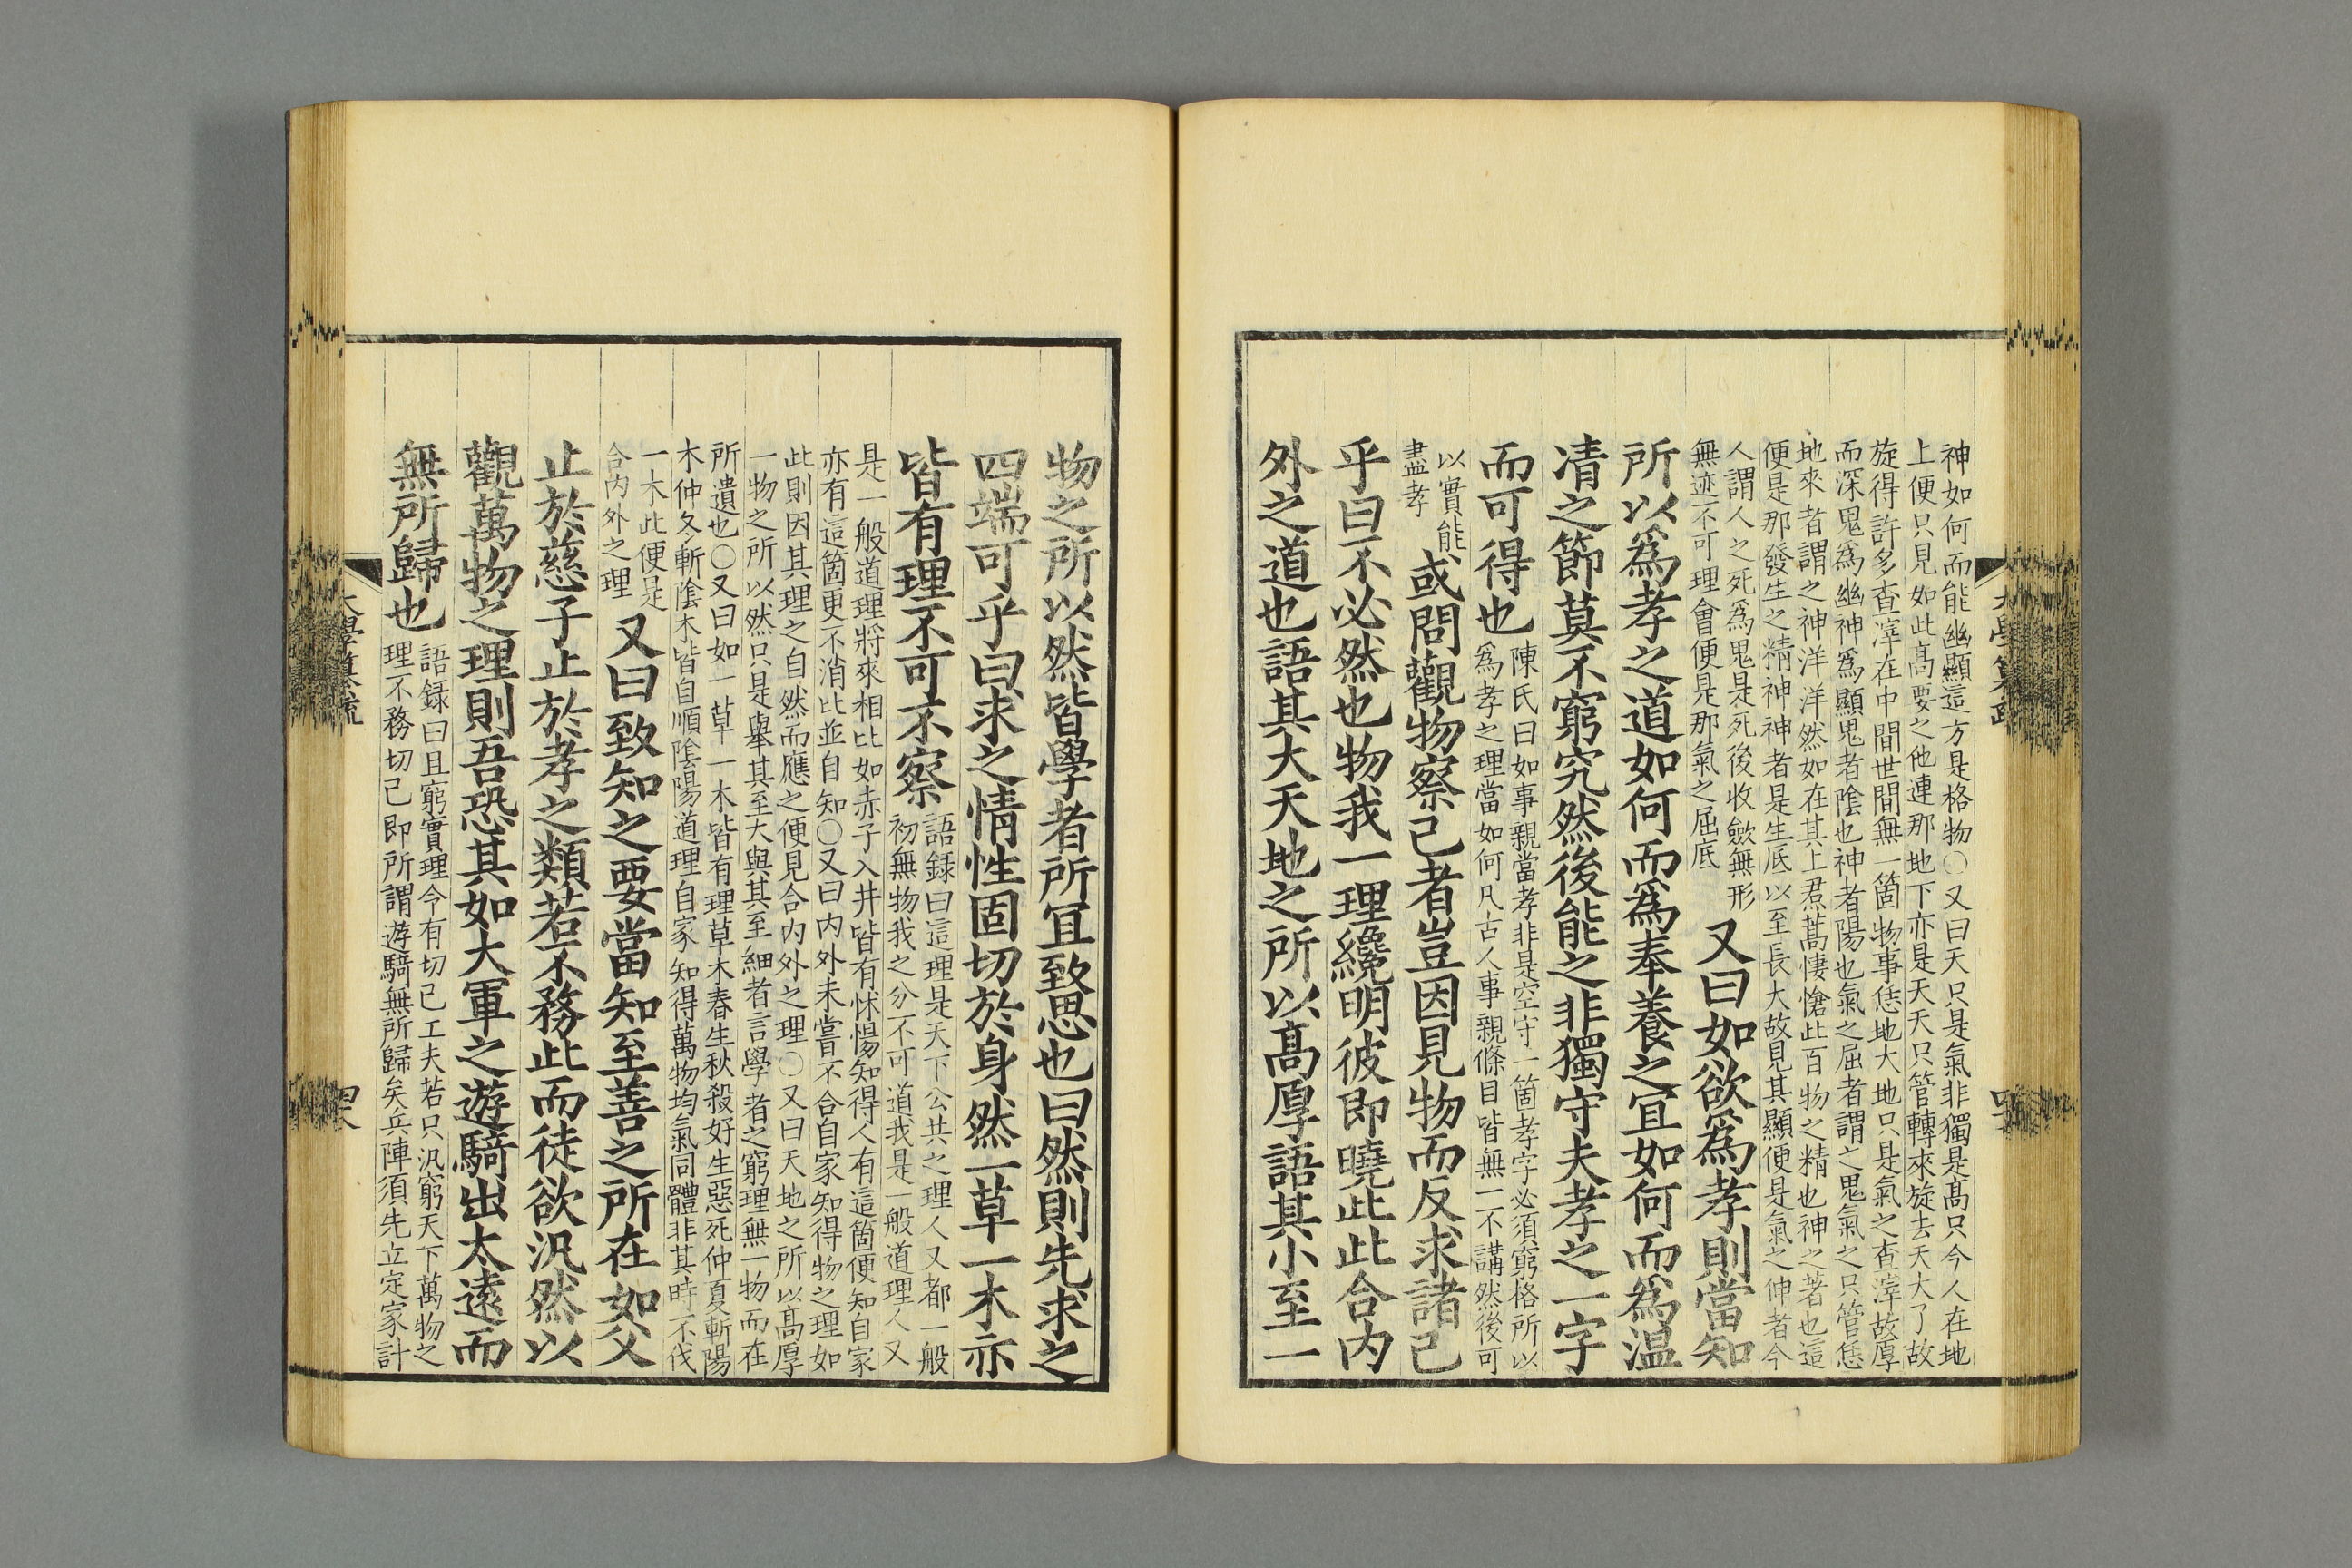 神如何而能幽顯這方是格物○又曰天只是氣非獨是髙只今人在地
上便只見如此髙要之他連那地下亦是天天只管轉來旋去天大了故
旋得許多查滓在中間世間無一箇物事恁地大地只是氣之查滓故厚
而深鬼爲幽神爲顯鬼者陰也神者陽也氣之屈者謂之鬼氣之只管恁
地來者謂之神洋洋然如在其上焄蒿悽愴此百物之精也神之著也這
便是那發生之精神神者是生底以至長大故見其顯便是氣之伸者今
人謂人之死爲鬼是死後收斂無形
無迹不可理會便是那氣之屈底
又曰如欲爲孝則當知
所以爲孝之道如何而爲奉養之冝如何而爲温
凊之節莫不窮究然後能之非獨守夫孝之一字
而可得也
陳氏曰如事親當孝非是空守一箇孝字必須窮格所以
爲孝之理當如何凡古人事親條目皆無一不講然後可
以實能
盡孝
或問觀物察己者豈因見物而反求諸己
乎曰不必然也物我一理纔明彼即曉此此合内
外之道也語其大天地之所以髙厚語其小至一
物之所以然皆學者所冝致思也曰然則先求之
四端可乎曰求之情性固切於身然一草一木亦
皆有理不可不察
語録曰這理是天下公共之理人又都一般
初無物我之分不可道我是一般道理人又
是一般道理將來相比如赤子入井皆有怵惕知得人有這箇便知自家
亦有這箇更不消比並自知○又曰内外未嘗不合自家知得物之理如
此則因其理之自然而應之便見合内外之理○又曰天地之所以髙厚
一物之所以然只是舉其至大與其至細者言學者之窮理無一物而在
所遺也○又曰如一草一木皆有理草木春生秋殺好生惡死仲夏斬陽
木仲冬斬陰木皆自順陰陽道理自家知得萬物均氣同體非其時不伐
一木此便是
合内外之理
又曰致知之要當知至善之所在如父
止於慈子止於孝之類若不務此而徒欲汎然以
觀萬物之理則吾恐其如大軍之遊騎出太遠而
無所歸也
語録曰且窮實理令有切己工夫若只汎窮天下萬物之
理不務切己即所謂遊騎無所歸矣兵陣須先立定家計